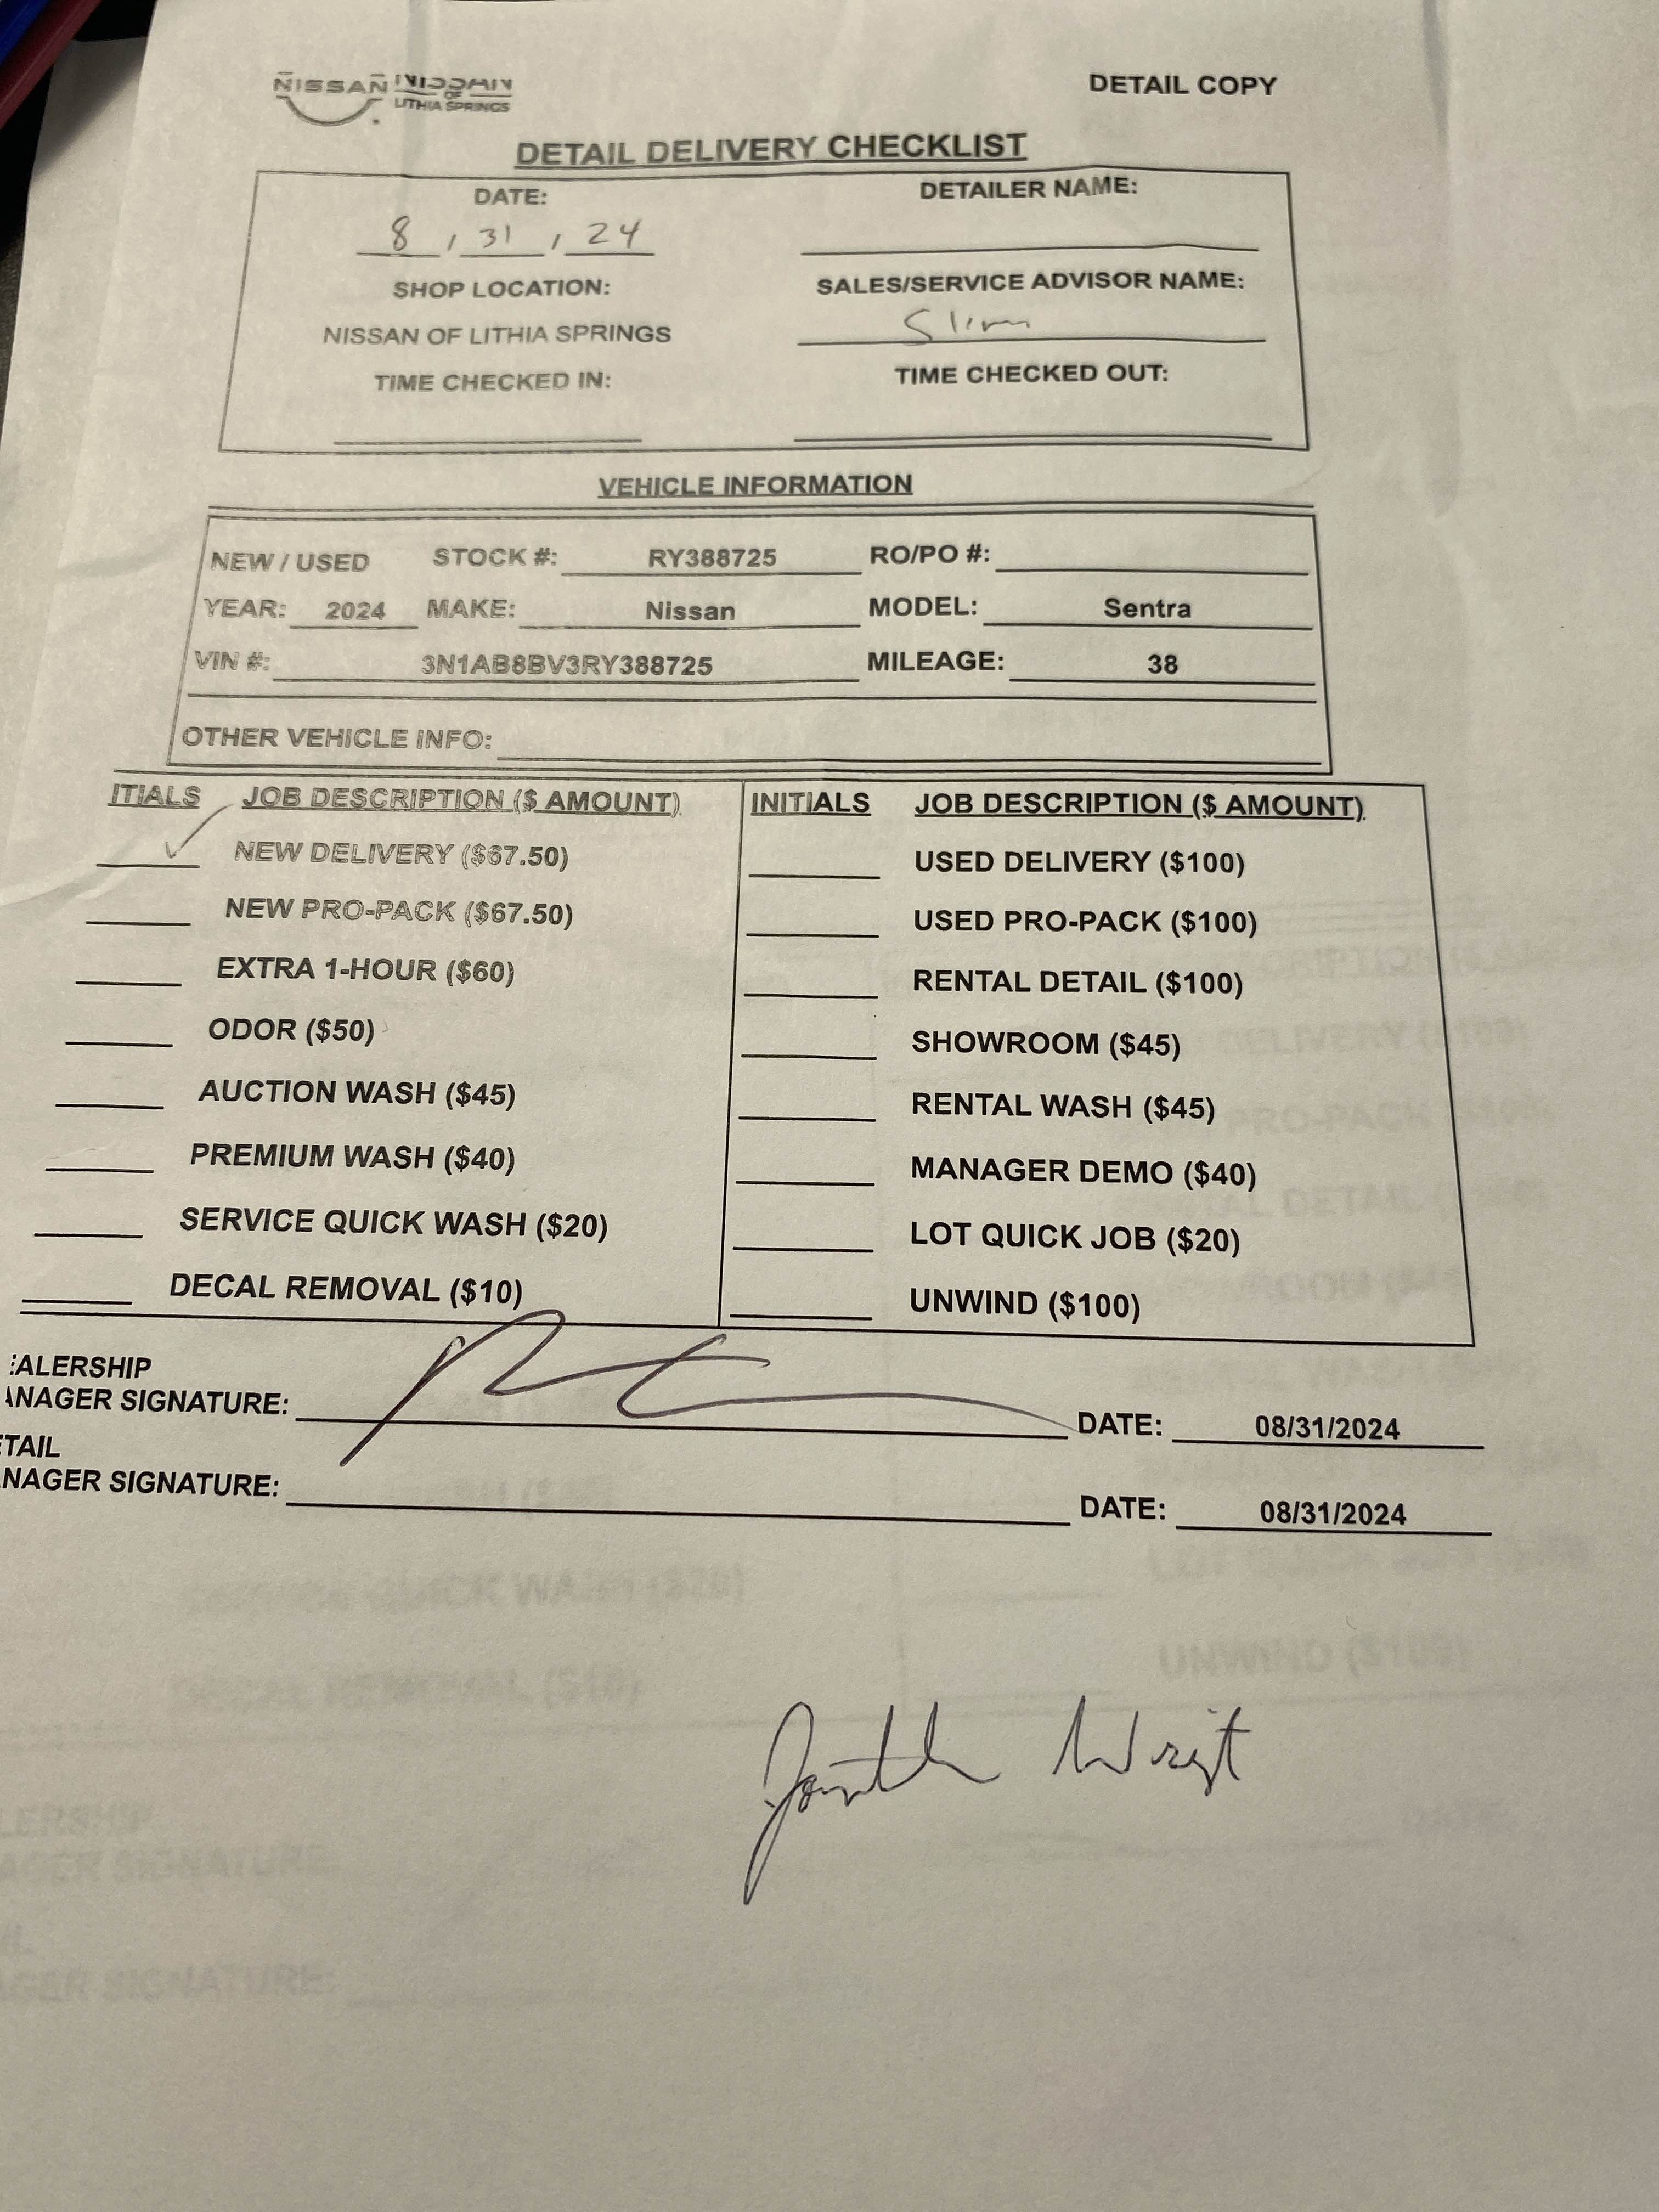 NISSAN NISSAN
OF
LITHIA SPRINGS
DETAIL COPY
DETAIL DELIVERY CHECKLIST
DATE: DETAILER NAME:
8 / 31 / 24
SHOP LOCATION: SALES/SERVICE ADVISOR NAME:
NISSAN OF LITHIA SPRINGS Slim
TIME CHECKED IN: TIME CHECKED OUT:
VEHICLE INFORMATION
NEW / USED STOCK #: RY388725 RO/PO #:
YEAR: 2024 MAKE: Nissan MODEL: Sentra
VIN #: 3N1AB8BV3RY388725 MILEAGE: 38
OTHER VEHICLE INFO:
ITIALS JOB DESCRIPTION ($ AMOUNT) INITIALS JOB DESCRIPTION ($ AMOUNT)
✓ NEW DELIVERY ($67.50) USED DELIVERY ($100)
NEW PRO-PACK ($67.50) USED PRO-PACK ($100)
EXTRA 1-HOUR ($60) RENTAL DETAIL ($100)
ODOR ($50) SHOWROOM ($45)
AUCTION WASH ($45) RENTAL WASH ($45)
PREMIUM WASH ($40) MANAGER DEMO ($40)
SERVICE QUICK WASH ($20) LOT QUICK JOB ($20)
DECAL REMOVAL ($10) UNWIND ($100)
EALERSHIP
ANAGER SIGNATURE: DATE: 08/31/2024
ETAIL
NAGER SIGNATURE: DATE: 08/31/2024